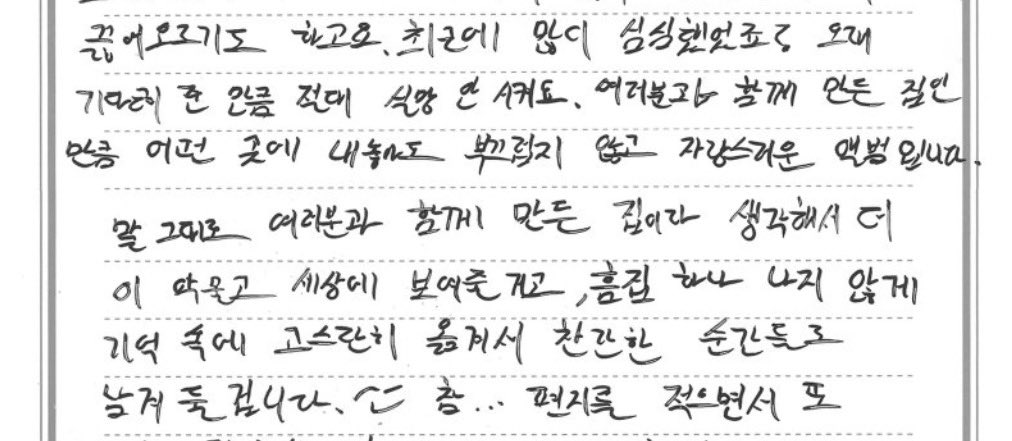 끓어오르기도 하고요. 최근에 많이 심심했었죠? 오래
기다려 준 만큼 절대 실망 안 시켜요. 여러분과 함께 만든 집인
만큼 어떤 곳에 내놓아도 부끄럽지 않고 자랑스러운 앨범입니다.
말 그대로 여러분과 함께 만든 집이라 생각해서 더
이 악물고 세상에 보여줄거고, 흠집 하나 나지 않게
기억 속에 고스란히 옮겨서 찬란한 순간들로
남겨 둘 겁니다. 참... 편지를 적으면서 또